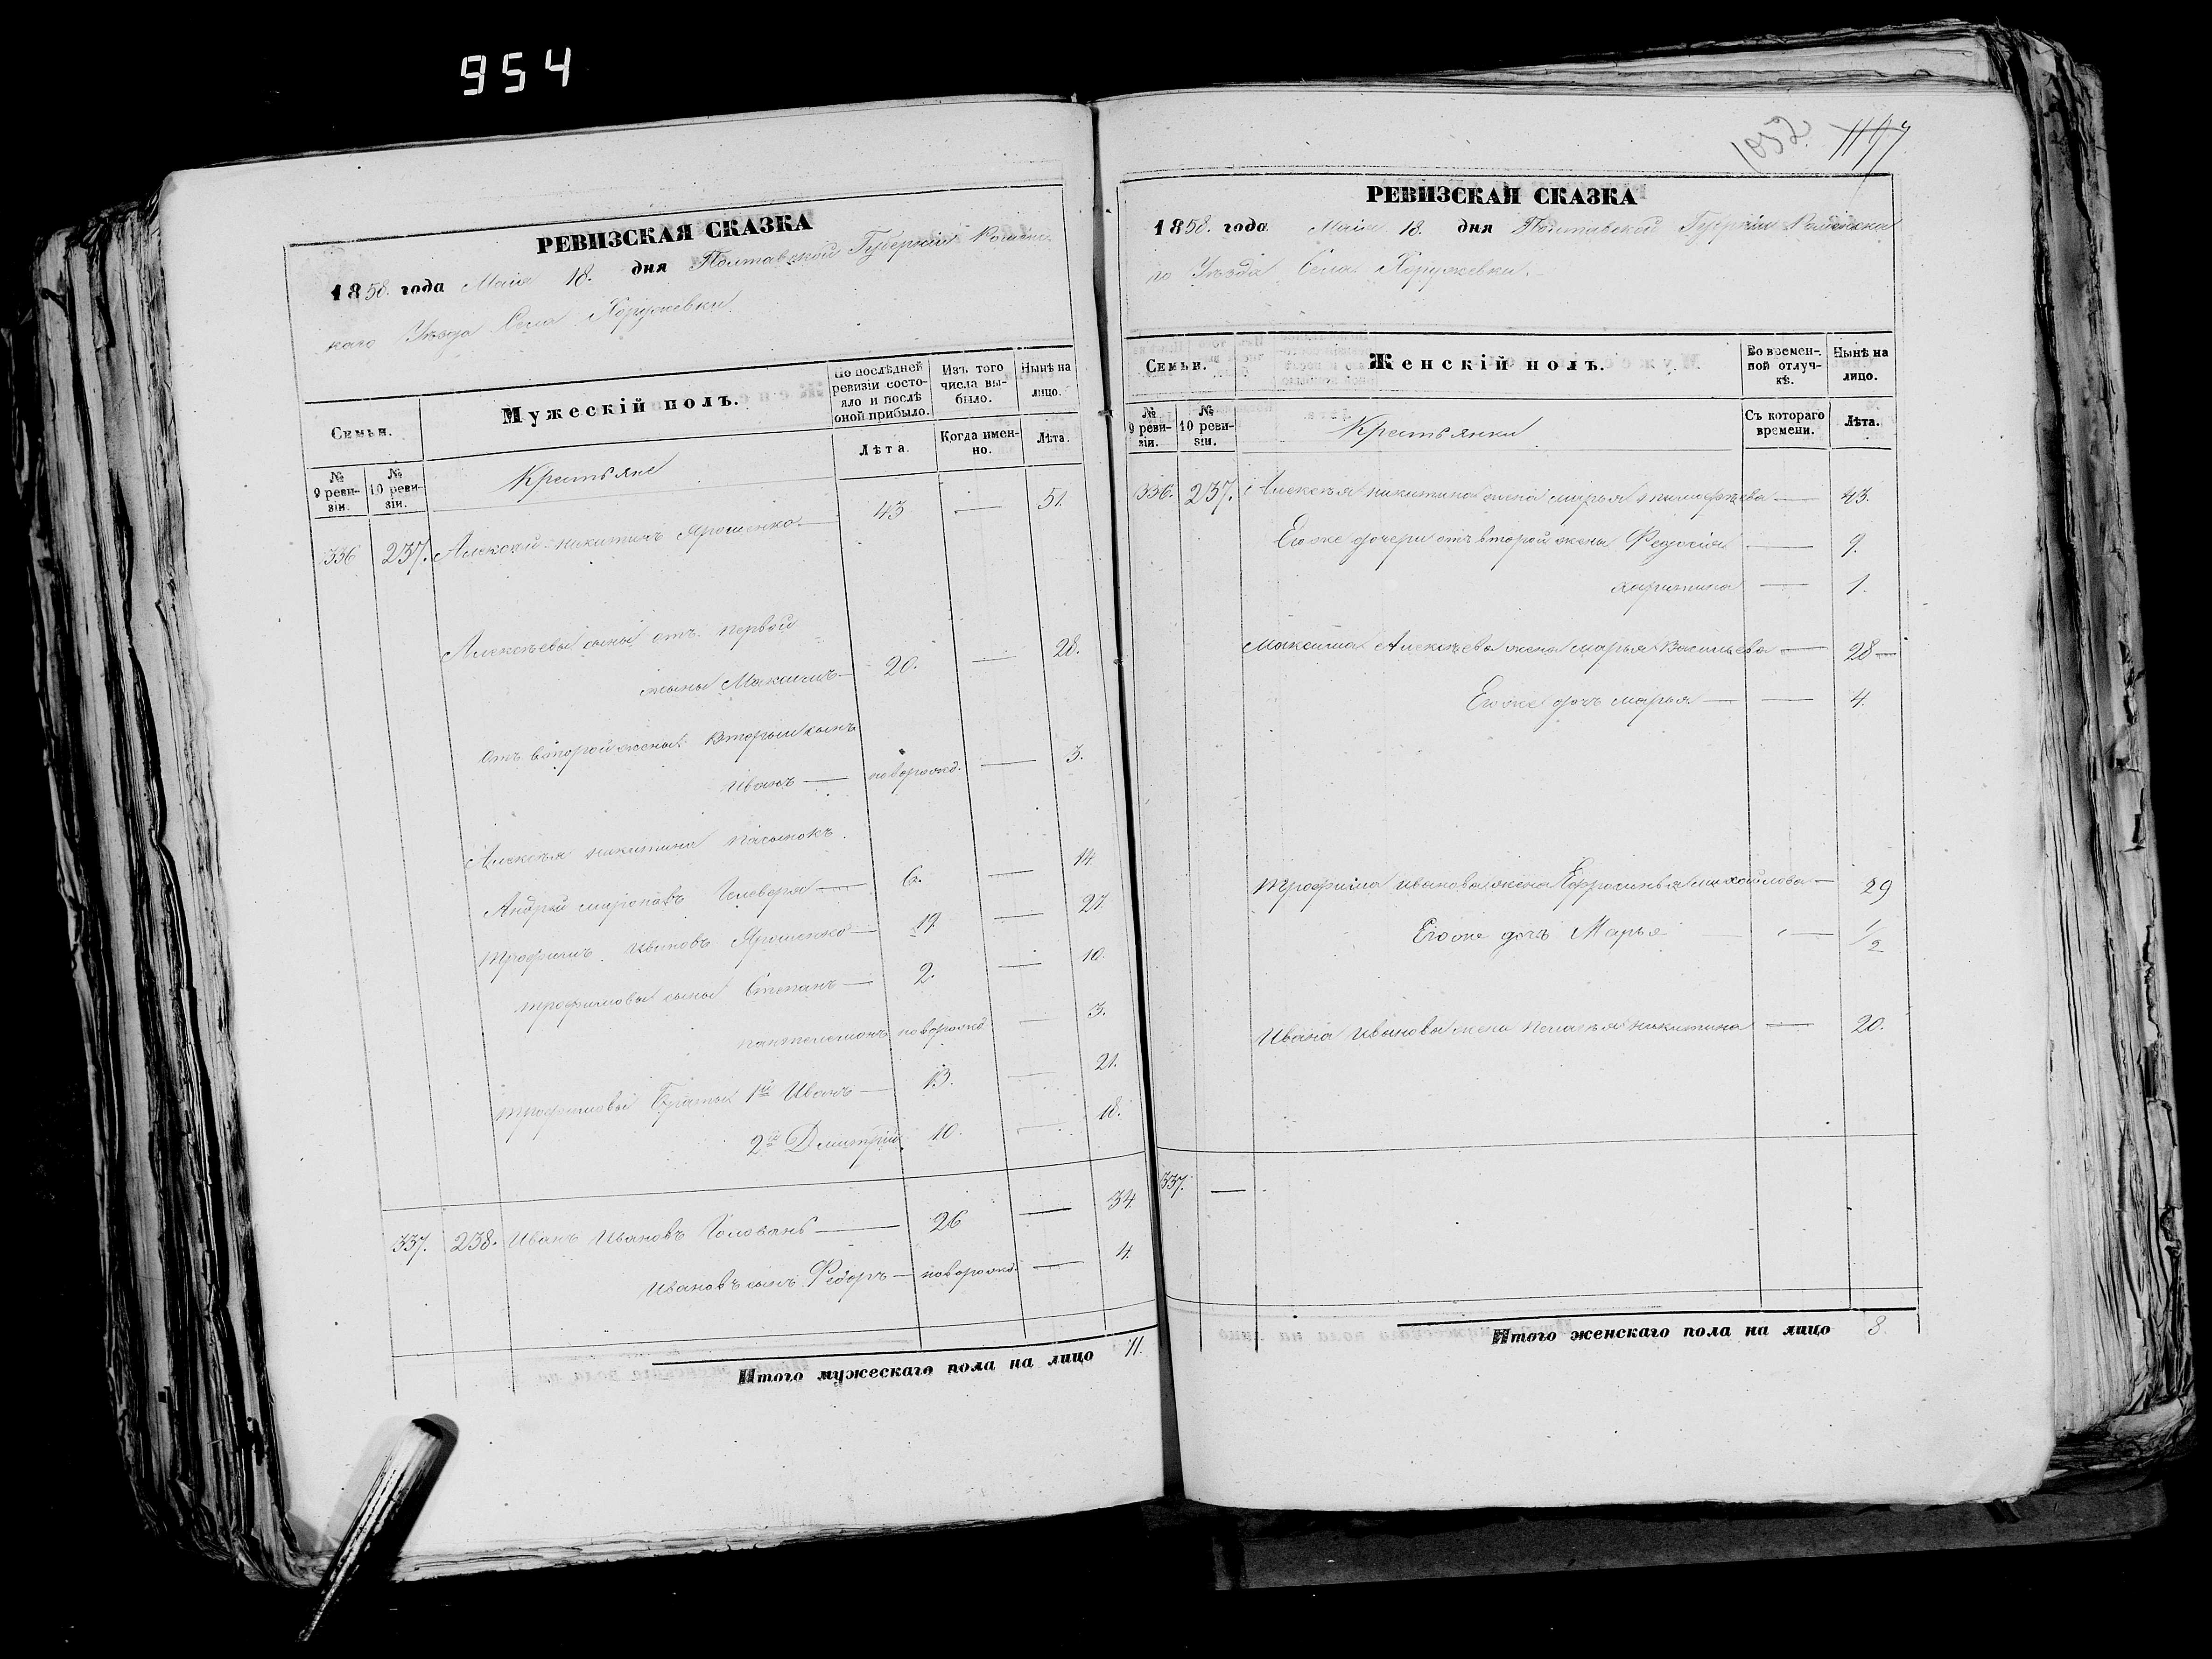 954
РЕВИЗСКАЯ СКАЗКА
1858. года Маія 18. дня Полтавской Губерніи Роменс-
каго Уѣзда Села Хоружевки.
Семьи.
Мужескій полъ.
По послѣдней ревизіи состояло и послѣ оной прибыло.
Изъ того числа выбыло.
Нынѣ на лицо.
№ 9 ревизіи.
№ 10 ревизіи.
Крестьяне
Лѣта.
Когда именно.
Лѣта.
336 237. Алексѣй Никитинъ Ярошенко — 43 — 51.
Алексѣевы сыны отъ первой
жены Максимъ — 20. — 28.
отъ второй жены вторый сынъ
Иванъ — новорожд. — 3.
Алексѣя Никитина пасынокъ
Андрей Мироновъ — 6. — 14
Трофимъ Ивановъ Ярошенко — 19 — 27.
Трофимовы сыны Степанъ — 2. — 10.
Пантелемонъ новорожд — 3.
Трофимовы братья 1й Иванъ — 13. — 21.
2й Дмитрій 10. — 18.
337. 238. Иванъ Ивановъ Головань — 26 — 34.
Ивановъ сынъ Федоръ — новорожд. — 4.
Итого мужескаго пола на лицо 11.
1052. 1197
РЕВИЗСКАЯ СКАЗКА
1858. года Маія 18. дня Полтавской Губерніи Роменска
го Уѣзда Села Хоружевки.
Семьи.
Женскій полъ.
Во временной отлучкѣ.
Нынѣ на лицо.
№ 9 ревизіи.
№ 10 ревизіи.
Крестьянки
Съ котораго времени.
Лѣта.
336. 237. Алексѣя Никитина жена Марья Тимофѣева — 43.
Его же дочери отъ второй жены Федосія — 9.
Харитина — 1.
Максима Алексѣева жена Марья Васильева — 28 —
Его же дочь Марья — — 4.
Трофима Иванова жена Евфросинья Михайлова — 29
Его же дочь Марья — 1/2
Ивана Иванова жена Пелагѣя Никитина — 20.
337. —
Итого женскаго пола на лицо 8.